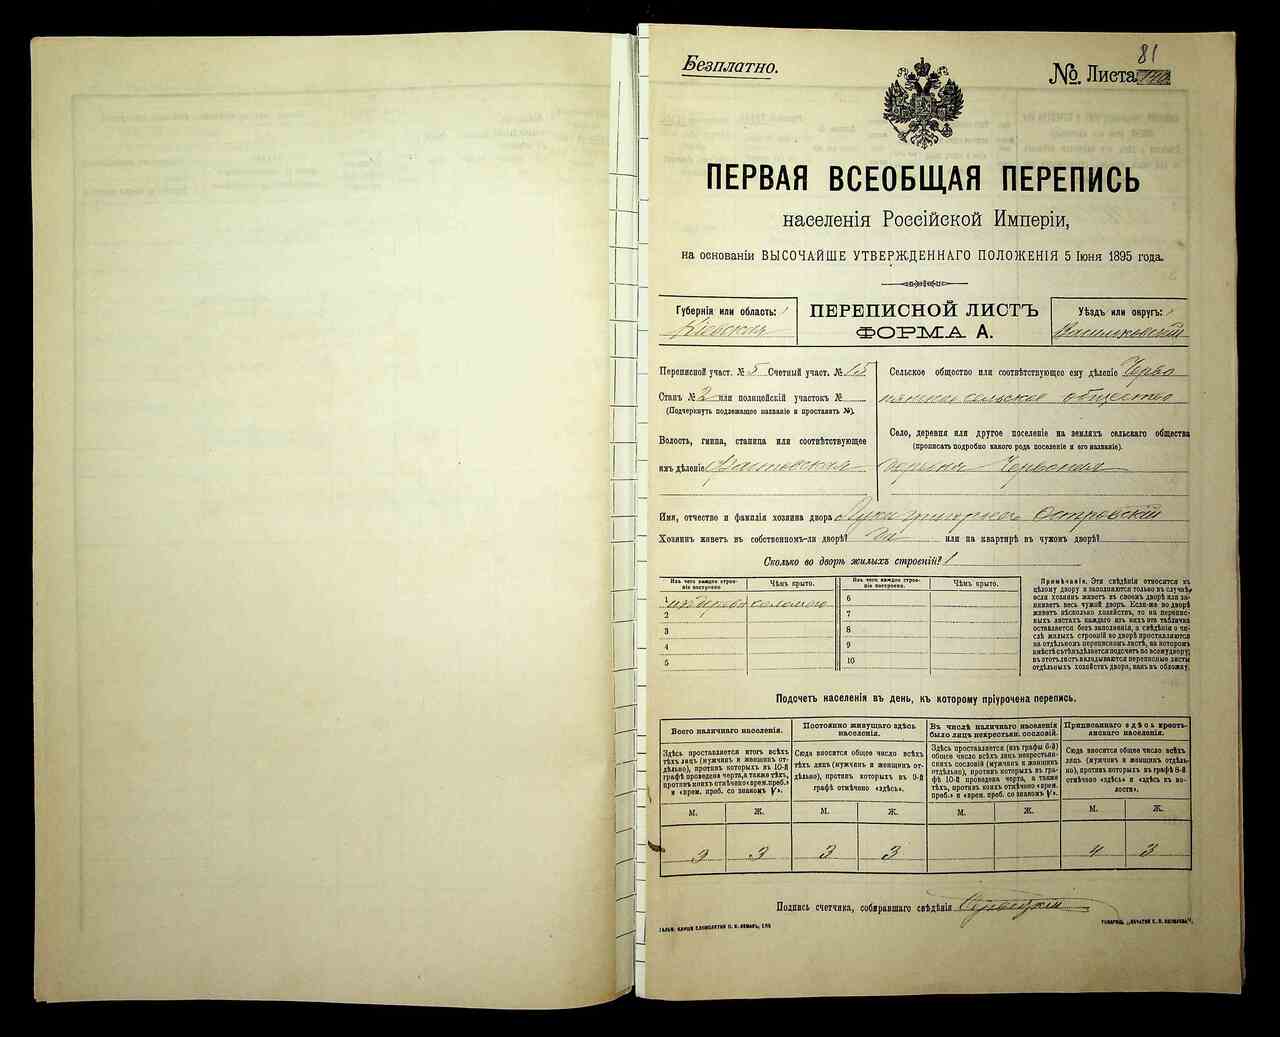 81
Безплатно.
№. Листа 140
ПЕРВАЯ ВСЕОБЩАЯ ПЕРЕПИСЬ
населенія Россійской Имперіи,
на основаніи ВЫСОЧАЙШЕ УТВЕРЖДЕННАГО ПОЛОЖЕНІЯ 5 Іюня 1895 года.
Губернія или область:
Кіевская
ПЕРЕПИСНОЙ ЛИСТЪ
ФОРМА А.
Уѣздъ или округъ:
Васильковскій
Переписной участ. № 5 Счетный участ. № 15
Станъ № 2 или полицейскій участокъ №
(Подчеркнуть подлежащее названіе и проставить №).
Волость, гмина, станица или соотвѣтствующее
имъ дѣленіе Фастовская
Сельское общество или соотвѣтствующее ему дѣленіе Черво
нянское сельское общество
Село, деревня или другое поселеніе на земляхъ сельскаго общества
(прописать подробно какого рода поселеніе и его названіе).
деревня Червоная
Имя, отчество и фамилія хозяина двора Лука Григорьевъ Островскій
Хозяинъ живетъ въ собственномъ-ли дворѣ? да или на квартирѣ въ чужомъ дворѣ?
Сколько во дворѣ жилыхъ строеній? 1
Изъ чего каждое строе-
ніе построено.
Чѣмъ крыто.
Изъ чего каждое строе-
ніе построено.
Чѣмъ крыто.
1 изъ дерева соломою
2
3
4
5
6
7
8
9
10
Примѣчаніе. Эти свѣдѣнія относятся къ
цѣлому двору и заполняются только въ случаѣ,
если хозяинъ живетъ въ своемъ дворѣ или за-
нимаетъ весь чужой дворъ. Если-же во дворѣ
живетъ нѣсколько хозяйствъ, то на перепис-
ныхъ листахъ каждаго изъ нихъ эта табличка
оставляется безъ заполненія, а свѣдѣнія о чи-
слѣ жилыхъ строеній во дворѣ проставляются
на отдѣльномъ переписномъ листѣ, на которомъ
вмѣстѣ съ тѣмъ дѣлается подсчетъ по всему двору;
въ этотъ листъ вкладываются переписные листы
отдѣльныхъ хозяйствъ двора, какъ въ обложку.
Подсчетъ населенія въ день, къ которому пріурочена перепись.
Всего наличнаго населенія.
Здѣсь проставляется итогъ всѣхъ
тѣхъ лицъ (мужчинъ и женщинъ от-
дѣльно), противъ которыхъ въ 10-й
графѣ проведена черта, а также тѣхъ,
противъ коихъ отмѣчено «врем. преб.»
и «врем. преб. со знакомъ V».
М. Ж.
3 3
Постоянно живущаго здѣсь
населенія.
Сюда вносится общее число всѣхъ
тѣхъ лицъ (мужчинъ и женщинъ от-
дѣльно), противъ которыхъ въ 9-й
графѣ отмѣчено «здѣсь».
М. Ж.
3 3
Въ числѣ наличнаго населенія
было лицъ некрестьян. сословій.
Здѣсь проставляется (изъ графы 6-й)
общее число всѣхъ лицъ некрестьян-
скихъ сословій (мужчинъ и женщинъ
отдѣльно), противъ которыхъ въ гра-
фѣ 10-й проведена черта, а также
тѣхъ, противъ коихъ отмѣчено «врем.
преб.» и «врем. преб. со знакомъ V».
М. Ж.
Приписаннаго здѣсь кресть-
янскаго населенія.
Сюда вносится общее число всѣхъ
лицъ (мужчинъ и женщинъ отдѣль-
но), противъ которыхъ въ графѣ 8-й
отмѣчено «здѣсь» и «здѣсь въ во-
лости».
М. Ж.
4 3
Подпись счетчика, собиравшаго свѣдѣнія